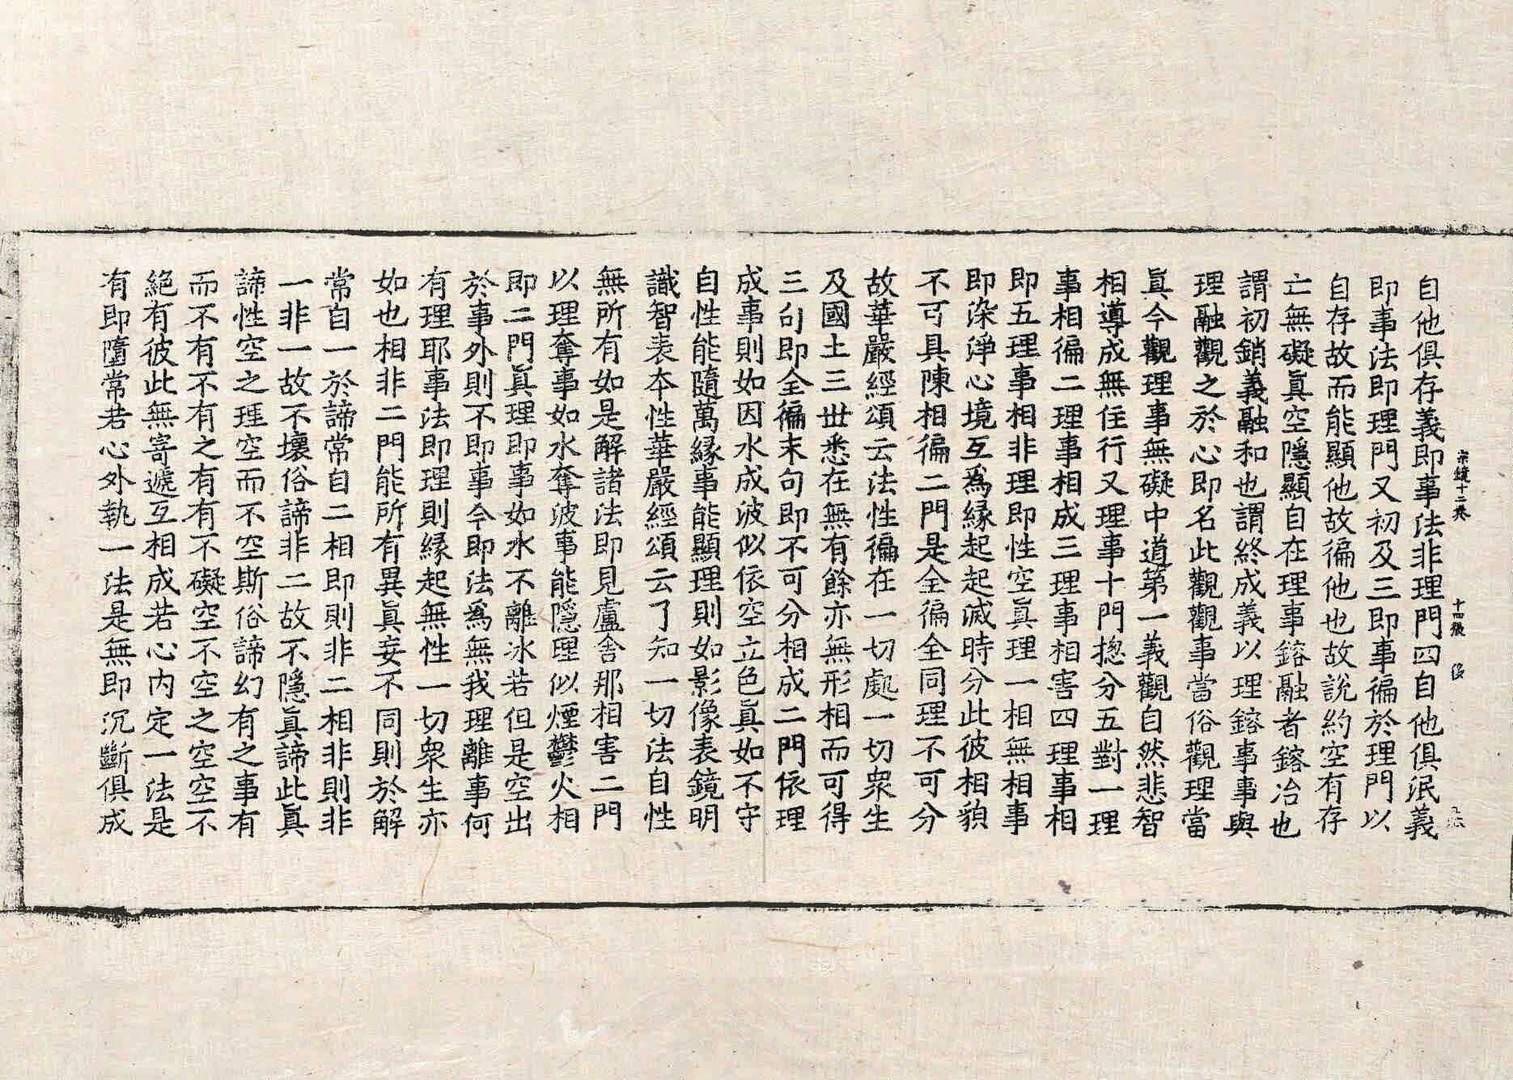 自他俱存義即事法非理門四自他俱泯義
宗鏡十二卷 十四張
即事法即理門又初及三即事徧於理門以
自存故而能顯他故徧他也故說約空有存
亡無礙真空隱顯自在理事鎔融者鎔冶也
謂初銷義融和也謂終成義以理鎔事事與
理融觀之於心即名此觀觀事當俗觀理當
真今觀理事無礙中道第一義觀自然悲智
相導成無住行又理事十門揔分五對一理
事相徧二理事相成三理事相害四理事相
即五理事相非理即性空真理一相無相事
即染淨心境互為緣起起滅時分此彼相貌
不可具陳相徧二門是全徧全同理不可分
故華嚴經頌云法性徧在一切處一切衆生
及國土三世悉在無有餘亦無形相而可得
三句即全徧末句即不可分相成二門依理
成事則如因水成波似依空立色真如不守
自性能隨萬緣事能顯理則如影像表鏡明
識智表本性華嚴經頌云了知一切法自性
無所有如是解諸法即見盧舍那相害二門
以理奪事如水奪波事能隱理似煙鬱火相
即二門真理即事如水不離冰若但是空出
於事外則不即事今即法為無我理離事何
有理耶事法即理則緣起無性一切衆生亦
如也相非二門能所有異真妄不同則於解
常自一於諦常自二相即則非二相非則非
一非一故不壞俗諦非二故不隱真諦此真
諦性空之理空而不空斯俗諦幻有之事有
而不有不有之有有不礙空不空之空空不
絕有彼此無寄遞互相成若心內定一法是
有即墮常若心外執一法是無即沉斷俱成